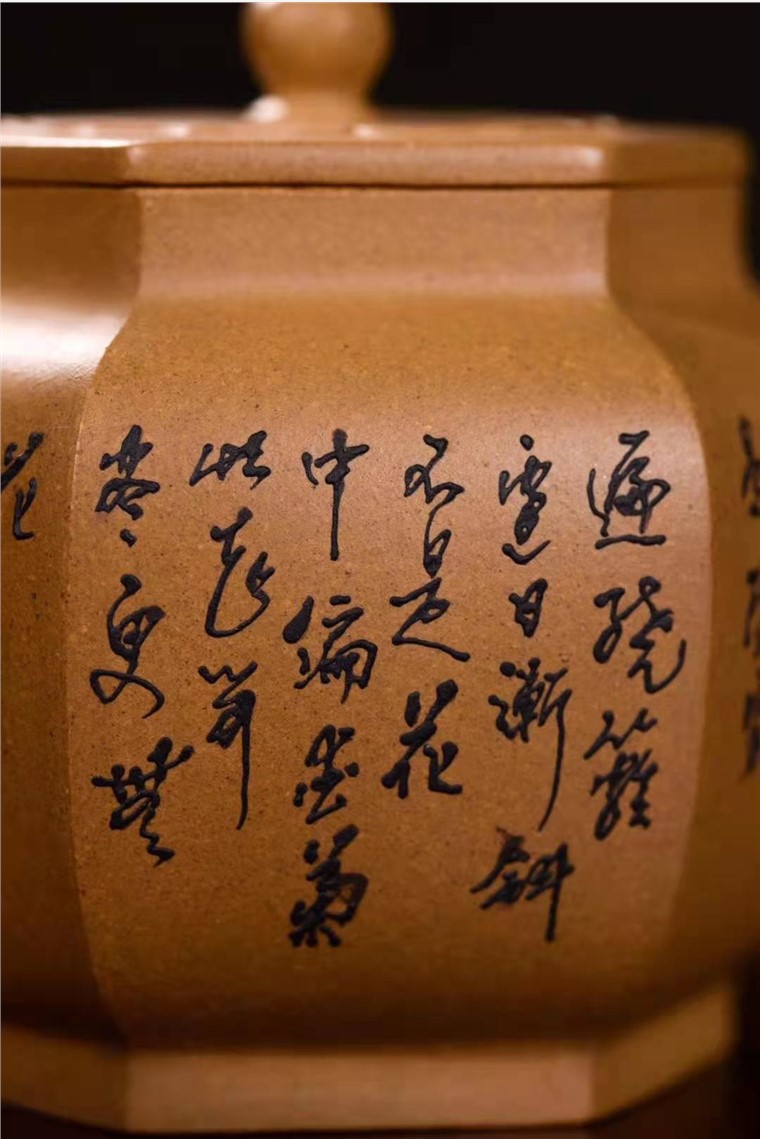 遍繞籬
邊日漸斜
不是花
中偏愛菊
此花開
盡更無
花